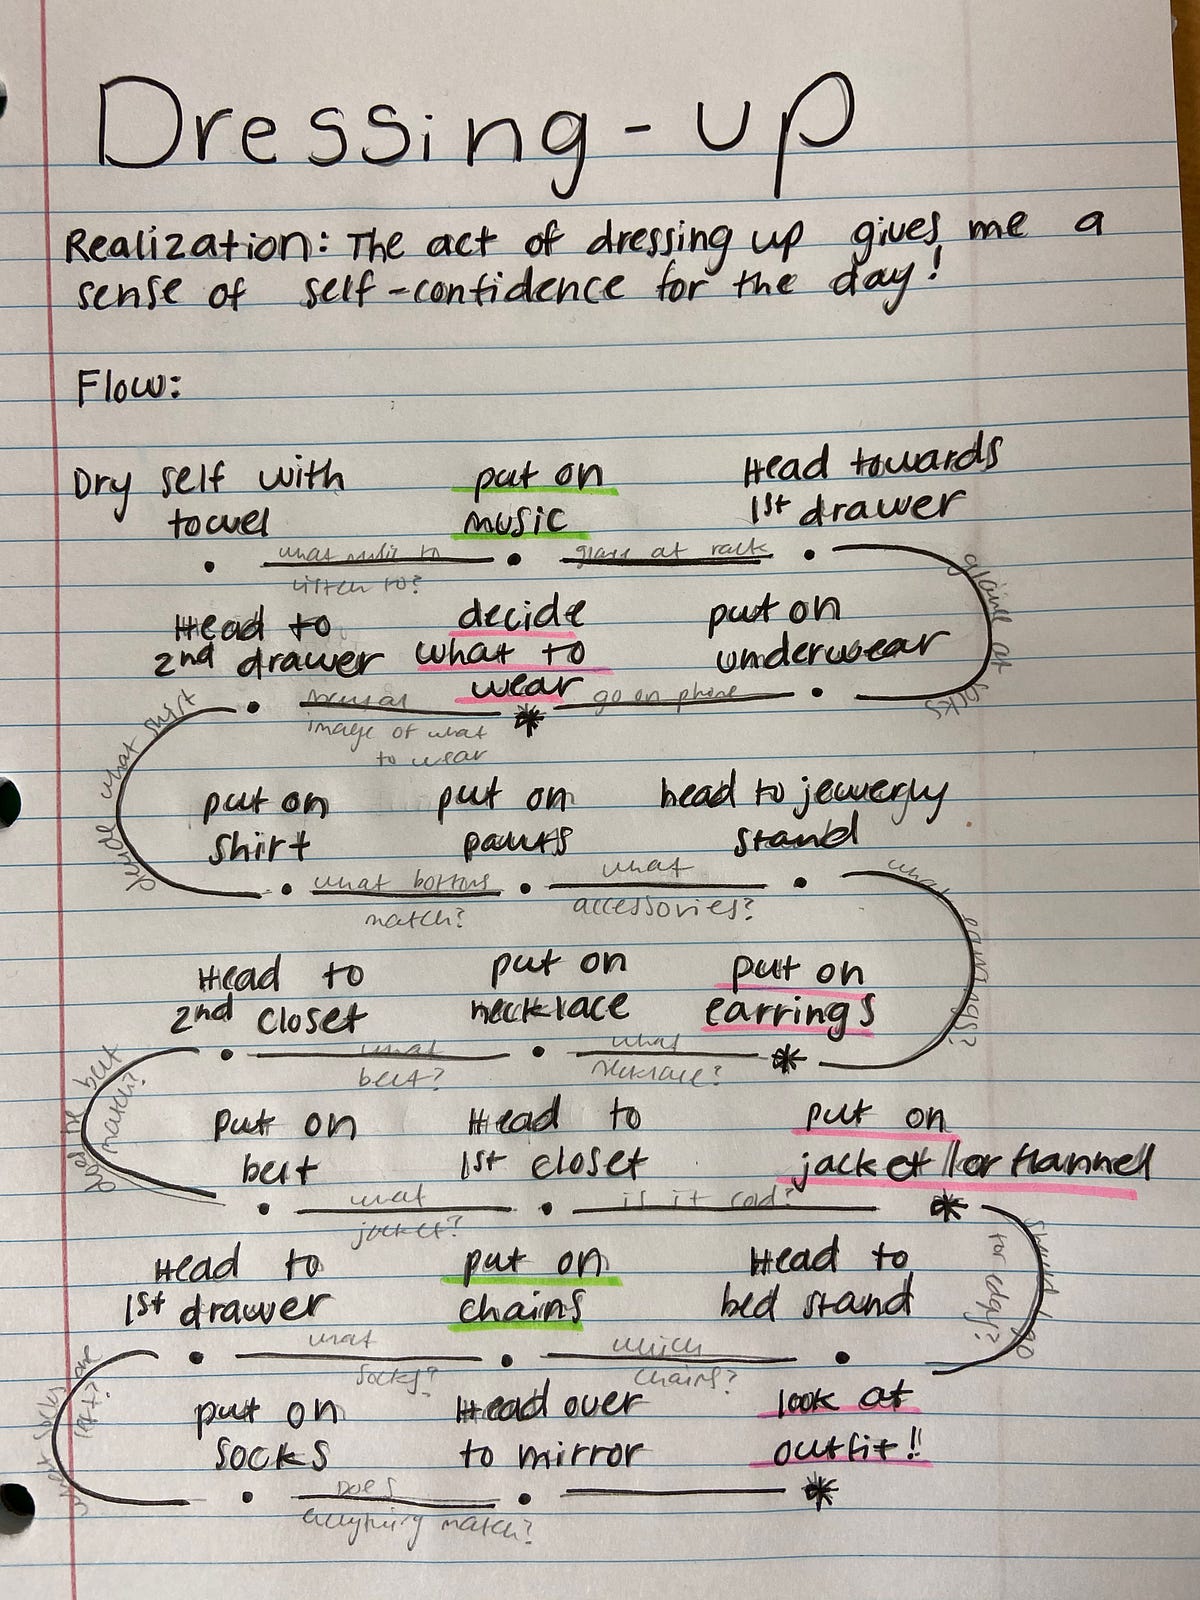 Dressing-up
Realization: The act of dressing up gives me a
sense of self-confidence for the day!
Flow:
Dry self with
towel
put on
music
Head towards
1st drawer
what music to
listen to?
glance at rack
glance at
socks
Head to
2nd drawer
decide
what to
wear
put on
underwear
go on phone
image of what
to wear
decide what shirt
put on
shirt
put on
pants
head to jewerly
stand
what bottoms
match?
what
accessories?
what earrings?
Head to
2nd closet
put on
necklace
put on
earrings
what
belt?
what
necklace?
does the belt
match?
put on
belt
Head to
1st closet
put on
jacket/or flannel
what
jacket?
is it cold?
should I go
for edgy?
Head to
1st drawer
put on
chains
Head to
bed stand
what
socks?
which
chains?
what socks are
left?
put on
socks
Head over
to mirror
look at
outfit!!
Does
everything match?